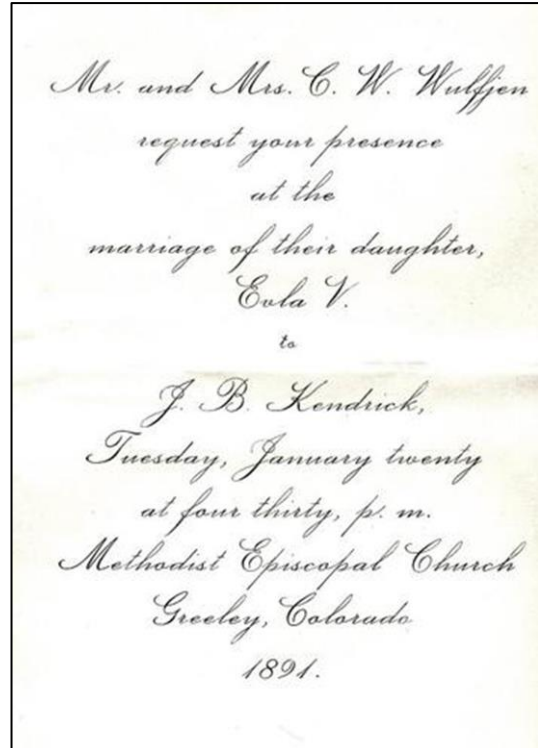 Mr. and Mrs. C. W. Wulfjen
request your presence
at the
marriage of their daughter,
Eula V.
to
J. B. Kendrick,
Tuesday, January twenty
at four thirty, p. m.
Methodist Episcopal Church
Greeley, Colorado
1891.